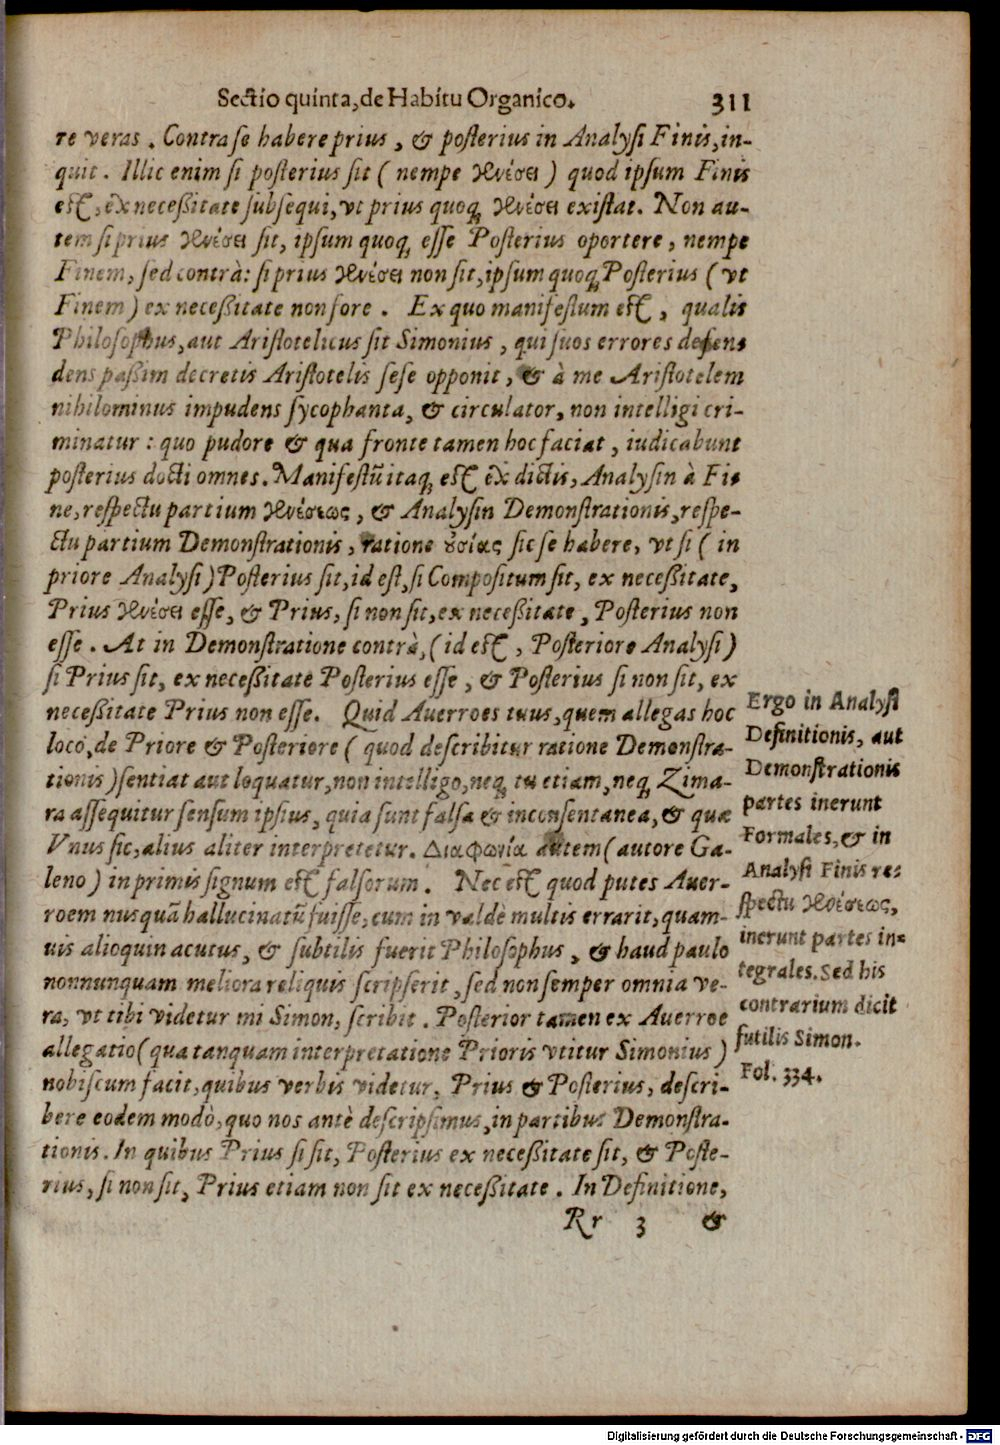 Sectio quinta, de Habitu Organico. 311
re veras. Contra se habere prius, & posterius in Analysi Finis, in-
quit. Illic enim si posterius sit ( nempe γενέσει ) quod ipsum Finis
est, ex necessitate subsequi, vt prius quoq; γενέσει existat. Non au-
tem si prius γενέσει sit, ipsum quoq; esse Posterius oportere, nempe
Finem, sed contrà: si prius γενέσει non sit, ipsum quoq; Posterius ( vt
Finem ) ex necessitate non fore. Ex quo manifestum est, qualis
Philosophus, aut Aristotelicus sit Simonius, qui suos errores defen-
dens passim decretis Aristotelis sese opponit, & à me Aristotelem
nihilominus impudens sycophanta, & circulator, non intelligi cri-
minatur: quo pudore & qua fronte tamen hoc faciat, iudicabunt
posterius docti omnes. Manifestũ itaq; est ex dictis, Analysin à Fi-
ne, respectu partium γενέσεως, & Analysin Demonstrationis, respe-
ctu partium Demonstrationis, ratione ȣ̓σίας sic se habere, vt si ( in
priore Analysi ) Posterius sit, id est, si Compositum sit, ex necessitate,
Prius γενέσει esse, & Prius, si non sit, ex necessitate, Posterius non
esse. At in Demonstratione contrà, ( id est, Posteriore Analysi )
si Prius sit, ex necessitate Posterius esse, & Posterius si non sit, ex
necessitate Prius non esse. Quid Auerroes tuus, quem allegas hoc
loco, de Priore & Posteriore ( quod describitur ratione Demonstra-
tionis ) sentiat aut loquatur, non intelligo, neq; tu etiam, neq; Zima-
ra assequitur sensum ipsius, quia sunt falsa & inconsentanea, & quæ
Vnus sic, alius aliter interpretetur. Διαφωνία autem ( autore Ga-
leno ) in primis signum est falsorum. Nec est quod putes Auer-
roem nusquã hallucinatũ fuisse, cum in valdè multis errarit, quam-
uis alioquin acutus, & subtilis fuerit Philosophus, & haud paulo
nonnunquam meliora reliquis scripserit, sed non semper omnia ve-
ra, vt tibi videtur mi Simon, scribit. Posterior tamen ex Auerroe
allegatio ( qua tanquam interpretatione Prioris vtitur Simonius )
nobiscum facit, quibus verbis videtur, Prius & Posterius, descri-
bere eodem modò, quo nos antè descripsimus, in partibus Demonstra-
tionis. In quibus Prius si sit, Posterius ex necessitate sit, & Poste-
rius, si non sit, Prius etiam non sit ex necessitate. In Definitione,
Rr 3 &
Ergo in Analysi
Definitionis, aut
Demonstrationis
partes inerunt
Formales, & in
Analysi Finis re-
spectu γενέσεως,
inerunt partes in-
tegrales. Sed his
contrarium dicit
futilis Simon.
Fol. 334.
Digitalisierung gefördert durch die Deutsche Forschungsgemeinschaft - DFG